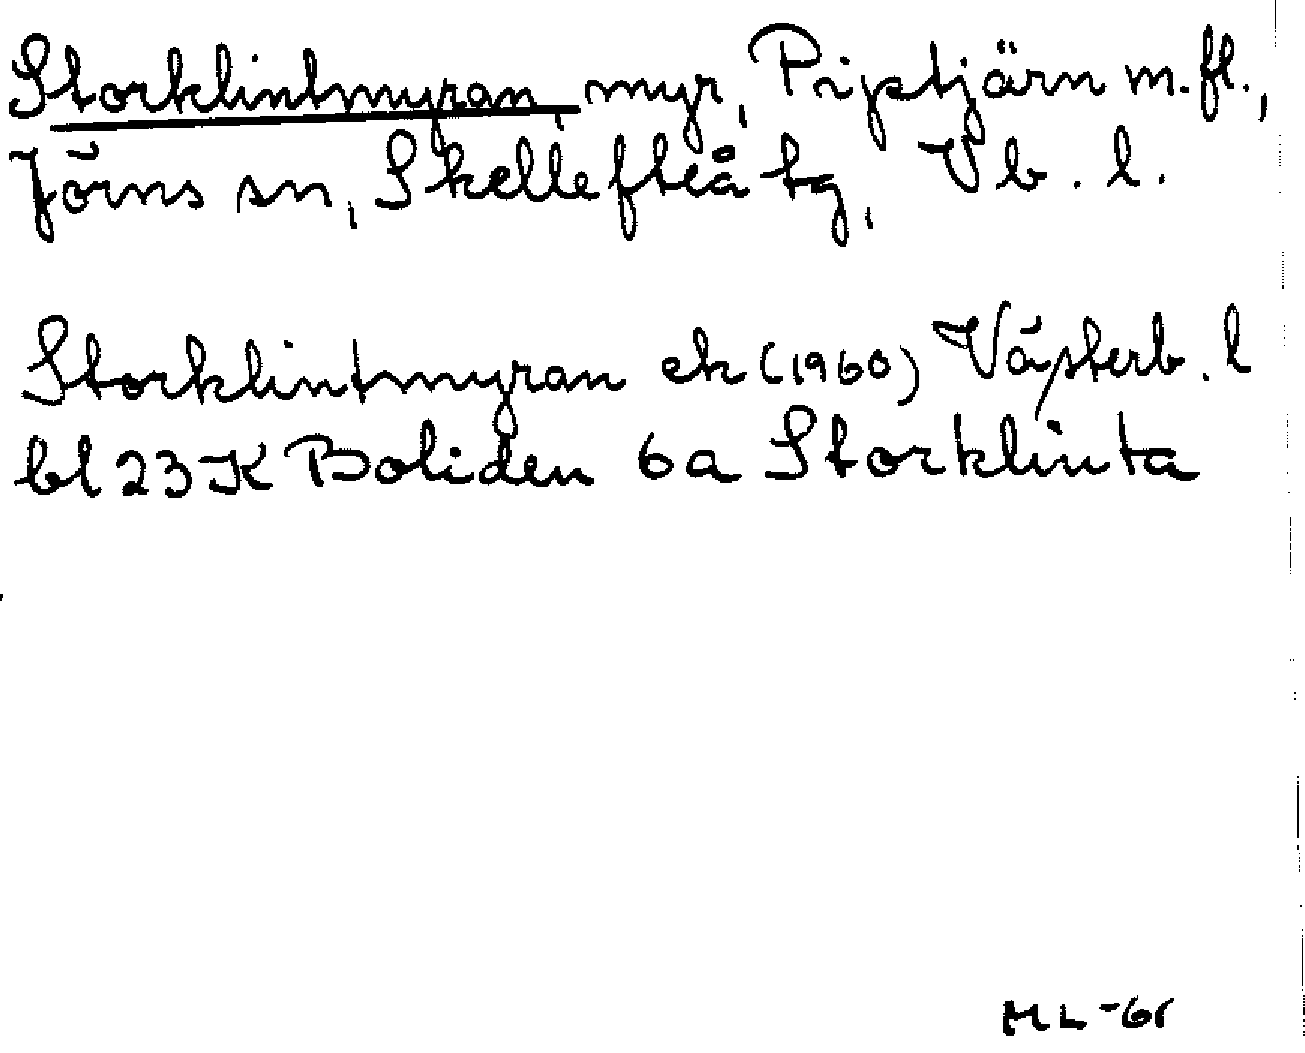 Storklintmyran, myr, Pipstjärn m.fl.,
Jörns sn, Skellefteå tg, Vb. l.
Storklintmyran ek (1960) Västerb. l
bl 23 K Boliden 6a Storklinta
ML -61